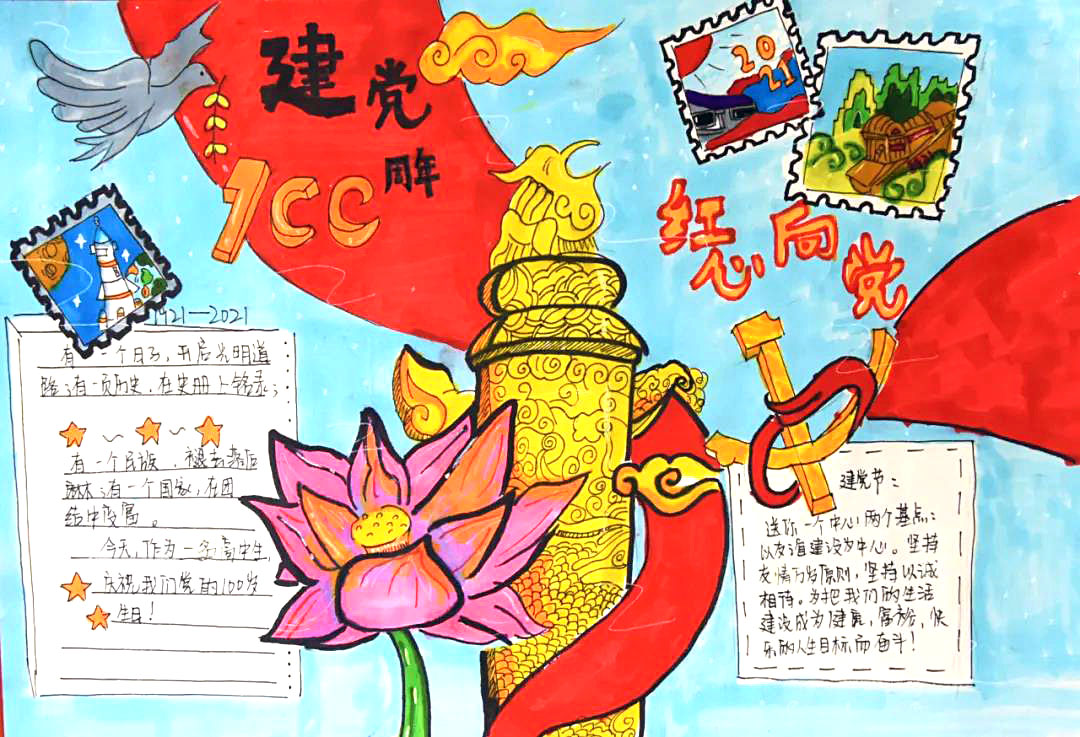 建党
100周年
2021
红心向党
1921—2021
有一个日子，开启光明道
路；有一页历史，在史册上铭录；
有一个民族，褪去落后
有一个国家，在团
结中
今天，作为一名高中生
庆祝我们党的100岁
生日！
建党节：
送你一个中心两个基点：
以友谊建设为中心。坚持
友情万岁原则，坚持以诚
相待。为把我们的生活
建设成为健康，富裕，快
乐的人生目标而奋斗！